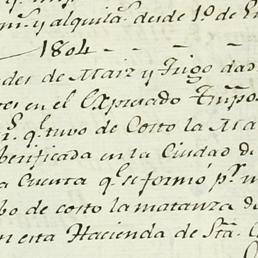 y alquila<sup>s</sup> desde 1.º de En
1804 - - - -
der de Maiz y Trigo das
en el Expresado Tmpo
q.e tuvo de Costo la Ma
berificada en la Ciudad de
a Cuenta q.e se formo p.r m
bo de costo la matanza de
n esta Hacienda de Sta. C